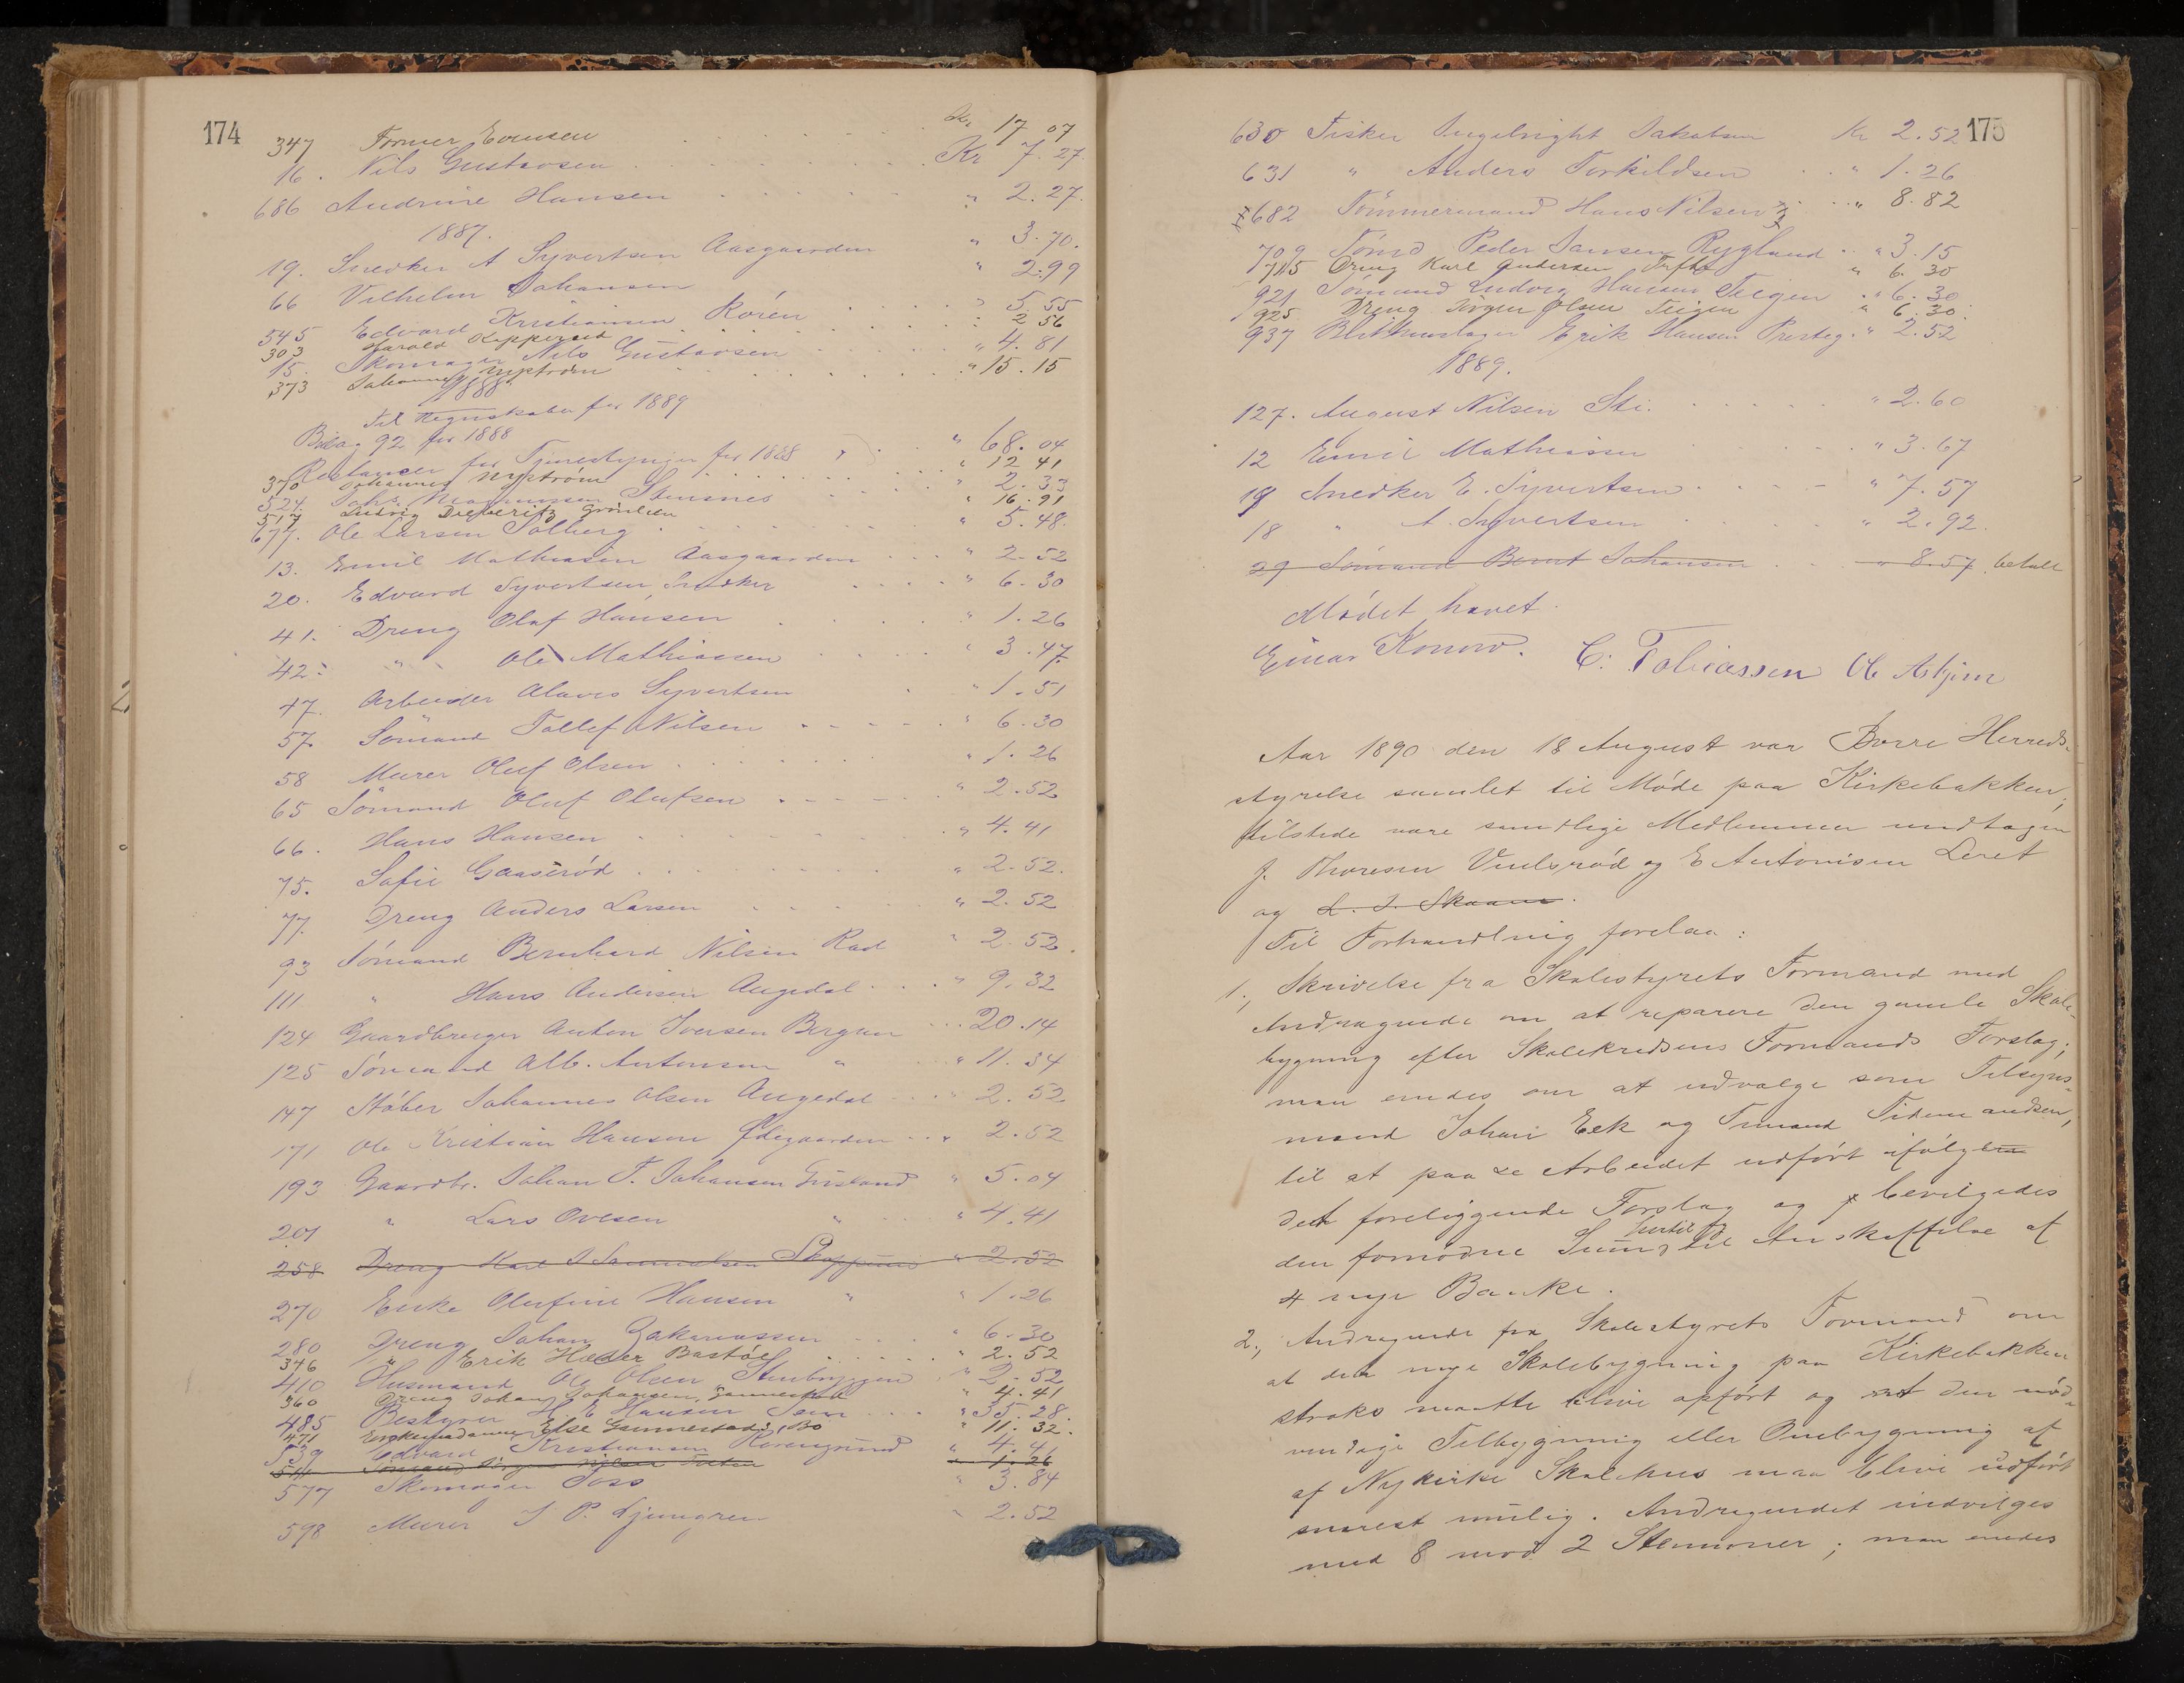 174
347 Former Evensen Kr 17 07
16. Nils Gustavsen Kr 7.27
686 Andrine Hansen " 2.27.
1887.
19. Snedker A Syvertsen Aasgaarden " 3.70.
66 Vilhelm Johansen " 2.99
545 Edvard Kristiansen Rören " 5.55
303 Harald Keppersød " 2 56
15. Skomager Nils Gustavsen " 4.81
373 Johannes Nyström " 15.15
1888
til Regnskabet for 1889
Bilag 92 for 1888 " 68.04
Restancer for Tjenestpenge for 1888
370 Johannes Nyström " 12 41
524. Johs. Magnussen Stensnes " 2.33
517 Ludvig Grönlien " 16.91
677. Ole Larsen Solberg " 5.48.
13. Emil Mathiasen Aasgaarden " 2.52
20. Edvard Syvertsen Snedker " 6.30
41. Dreng Olaf Hansen " 1.26
42. " Ole Mathiassen " 3.47.
47. Arbeider Alavis Syvertsen " 1.51
57. Sömand Tollef Nilsen " 6.30
58 Murer Oluf Olsen " 1.26
65 Sömand Oluf Olufsen " 2.52
66. Hans Hansen " 4.41
75. Sofie Gaaserød " 2.52.
77. Dreng Anders Larsen " 2.52
93 Sömand Bernhard Nilsen Rad " 2.52.
111 " Hans Andersen Augedal " 9.32
124 Gaardbruger Anton Iversen Bergan 20.14
125 Sömand Alb. Antonsen " " 11.34
147 Støber Johannes Olsen Augedal " 2.52
171 Ole Kristian Hansen Ødegaarden " 2.52
193 Gaardbr. Johan T. Johansen Grisland " 5.04
201 " Lars Ovesen " " 4.41
258 Dreng Karl J Samuelsen Skoppum " 2.52
270 Enke Olufine Hansen " " 1.26
280 Dreng Johan Zakariassen " 6.30
346 " Erik Hæder Bastöe " 2.52
410 Husmand Ole Olsen Stenbryggen " 2.52
360 Dreng Johan Johansen Gannestad " 4.41
485 Bestyrer H. E Hansen Sem " 35.28.
471 Enkemadame Else Gannestad, Bö " 11.32.
539 Edvard Kristiansen Rørengrund " 4.41
Sömand Jörgen Nilsen " 1.26
577 Skomager Foss " 3.84
598 Murer J P. Ljungren " 2.52
175
630 Fisker Ingebright Jakobsen Kr 2.52
631 " Anders Torkildsen " 1.26
682 Tömmermand Hans Nilsen " 8.82
709 Sömd Peder Jansen Rygland " 3.15
715 Dreng Karl Andersen Tufte " 6.30
921 Sömand Ludvig Hansen Teigen " 6.30
925 Dreng Jörgen Olsen Teigen " 6.30.
937 Blikkenslager Erik Hansen Presteg. " 2.52
1889.
127. August Nilsen Sti. " 2.60
12 Emil Mathiassen " 3.67
19 Snedker E. Syvertsen " 7.57
18 " A. Syvertsen " 2.92.
29 Sömand Bernt Johansen " 8.57 betalt
Mödet hævet.
Einar Konow. C. Tobiassen Ol. Askjem
Aar 1890 den 18 August var Borre Herreds-
styrelse samlet til Möde paa Kirkebakken;
tilstede vare samtlige Medlemmer undtagen
J. Thoresen Vuelsröd og E Antonisen Leret
og L. J. Skaane.
Til Forhandling forelaa:
1., Skrivelse fra Skolestyrets Formand med
Andragende om at reparere den gamle Skole-
bygning efter Skolekredsens Formands Forslag;
man enedes om at udvælge som Tilsyns-
mænd Johan Eek og Tidemandsen,
til at paase Arbeidet udført ifølge
det foreliggende Forslag og bevilgedes
den fornødne Sum hertil til Anskaffelse af
4 nye Bænke.
2., Andragende fra Skolestyrets Formand om
at den nye Skolebygning paa Kirkebakken
straks maatte blive opført og at den nød-
vendige Tilbygning eller Ombygning af
af Nykirke Skolehus maa blive udført
snarest mulig. Andragendet indvilges
med 8 mod 2 Stemmer; man enedes